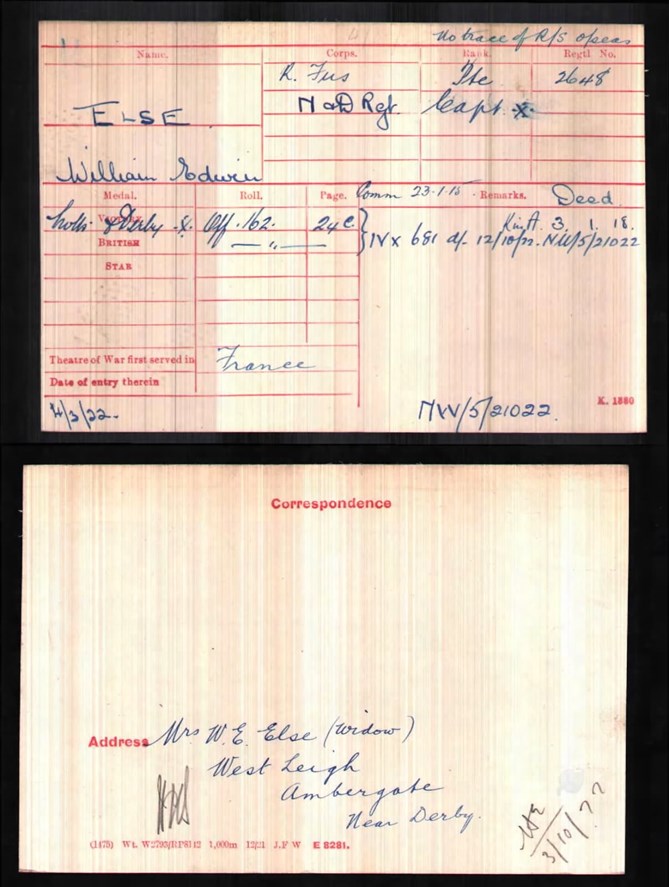 No trace of R/S o/seas
Name. Corps. Rank. Regtl. No.
R. Fus Pte 2648
ELSE N & D Regt. Capt. X
William Edwin
Medal. Roll. Page. Comm 23-1-15 Remarks. Deed
Victory Notts & Derby X. Off. 162. 24 K in A 3. 1. 18.
BRITISH — " — IV X 681 d/- 12/10/22. NW/5/21022
STAR
Theatre of War first served in France
Date of entry therein
4/3/22. NW/5/21022. K. 1380
Correspondence
Address Mrs W. E. Else (Widow)
West Leigh
Ambergate
Near Derby.
(1475) Wt. W2793/RP8142 1,000m 12/21 J.F W E 8281.
3/10/22